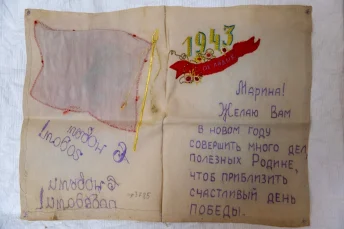 С новым
годом!
С новым
1943
Марина!
Желаю Вам
в новом году
совершить много дел
полезных Родине,
чтоб приблизить
счастливый день
победы.